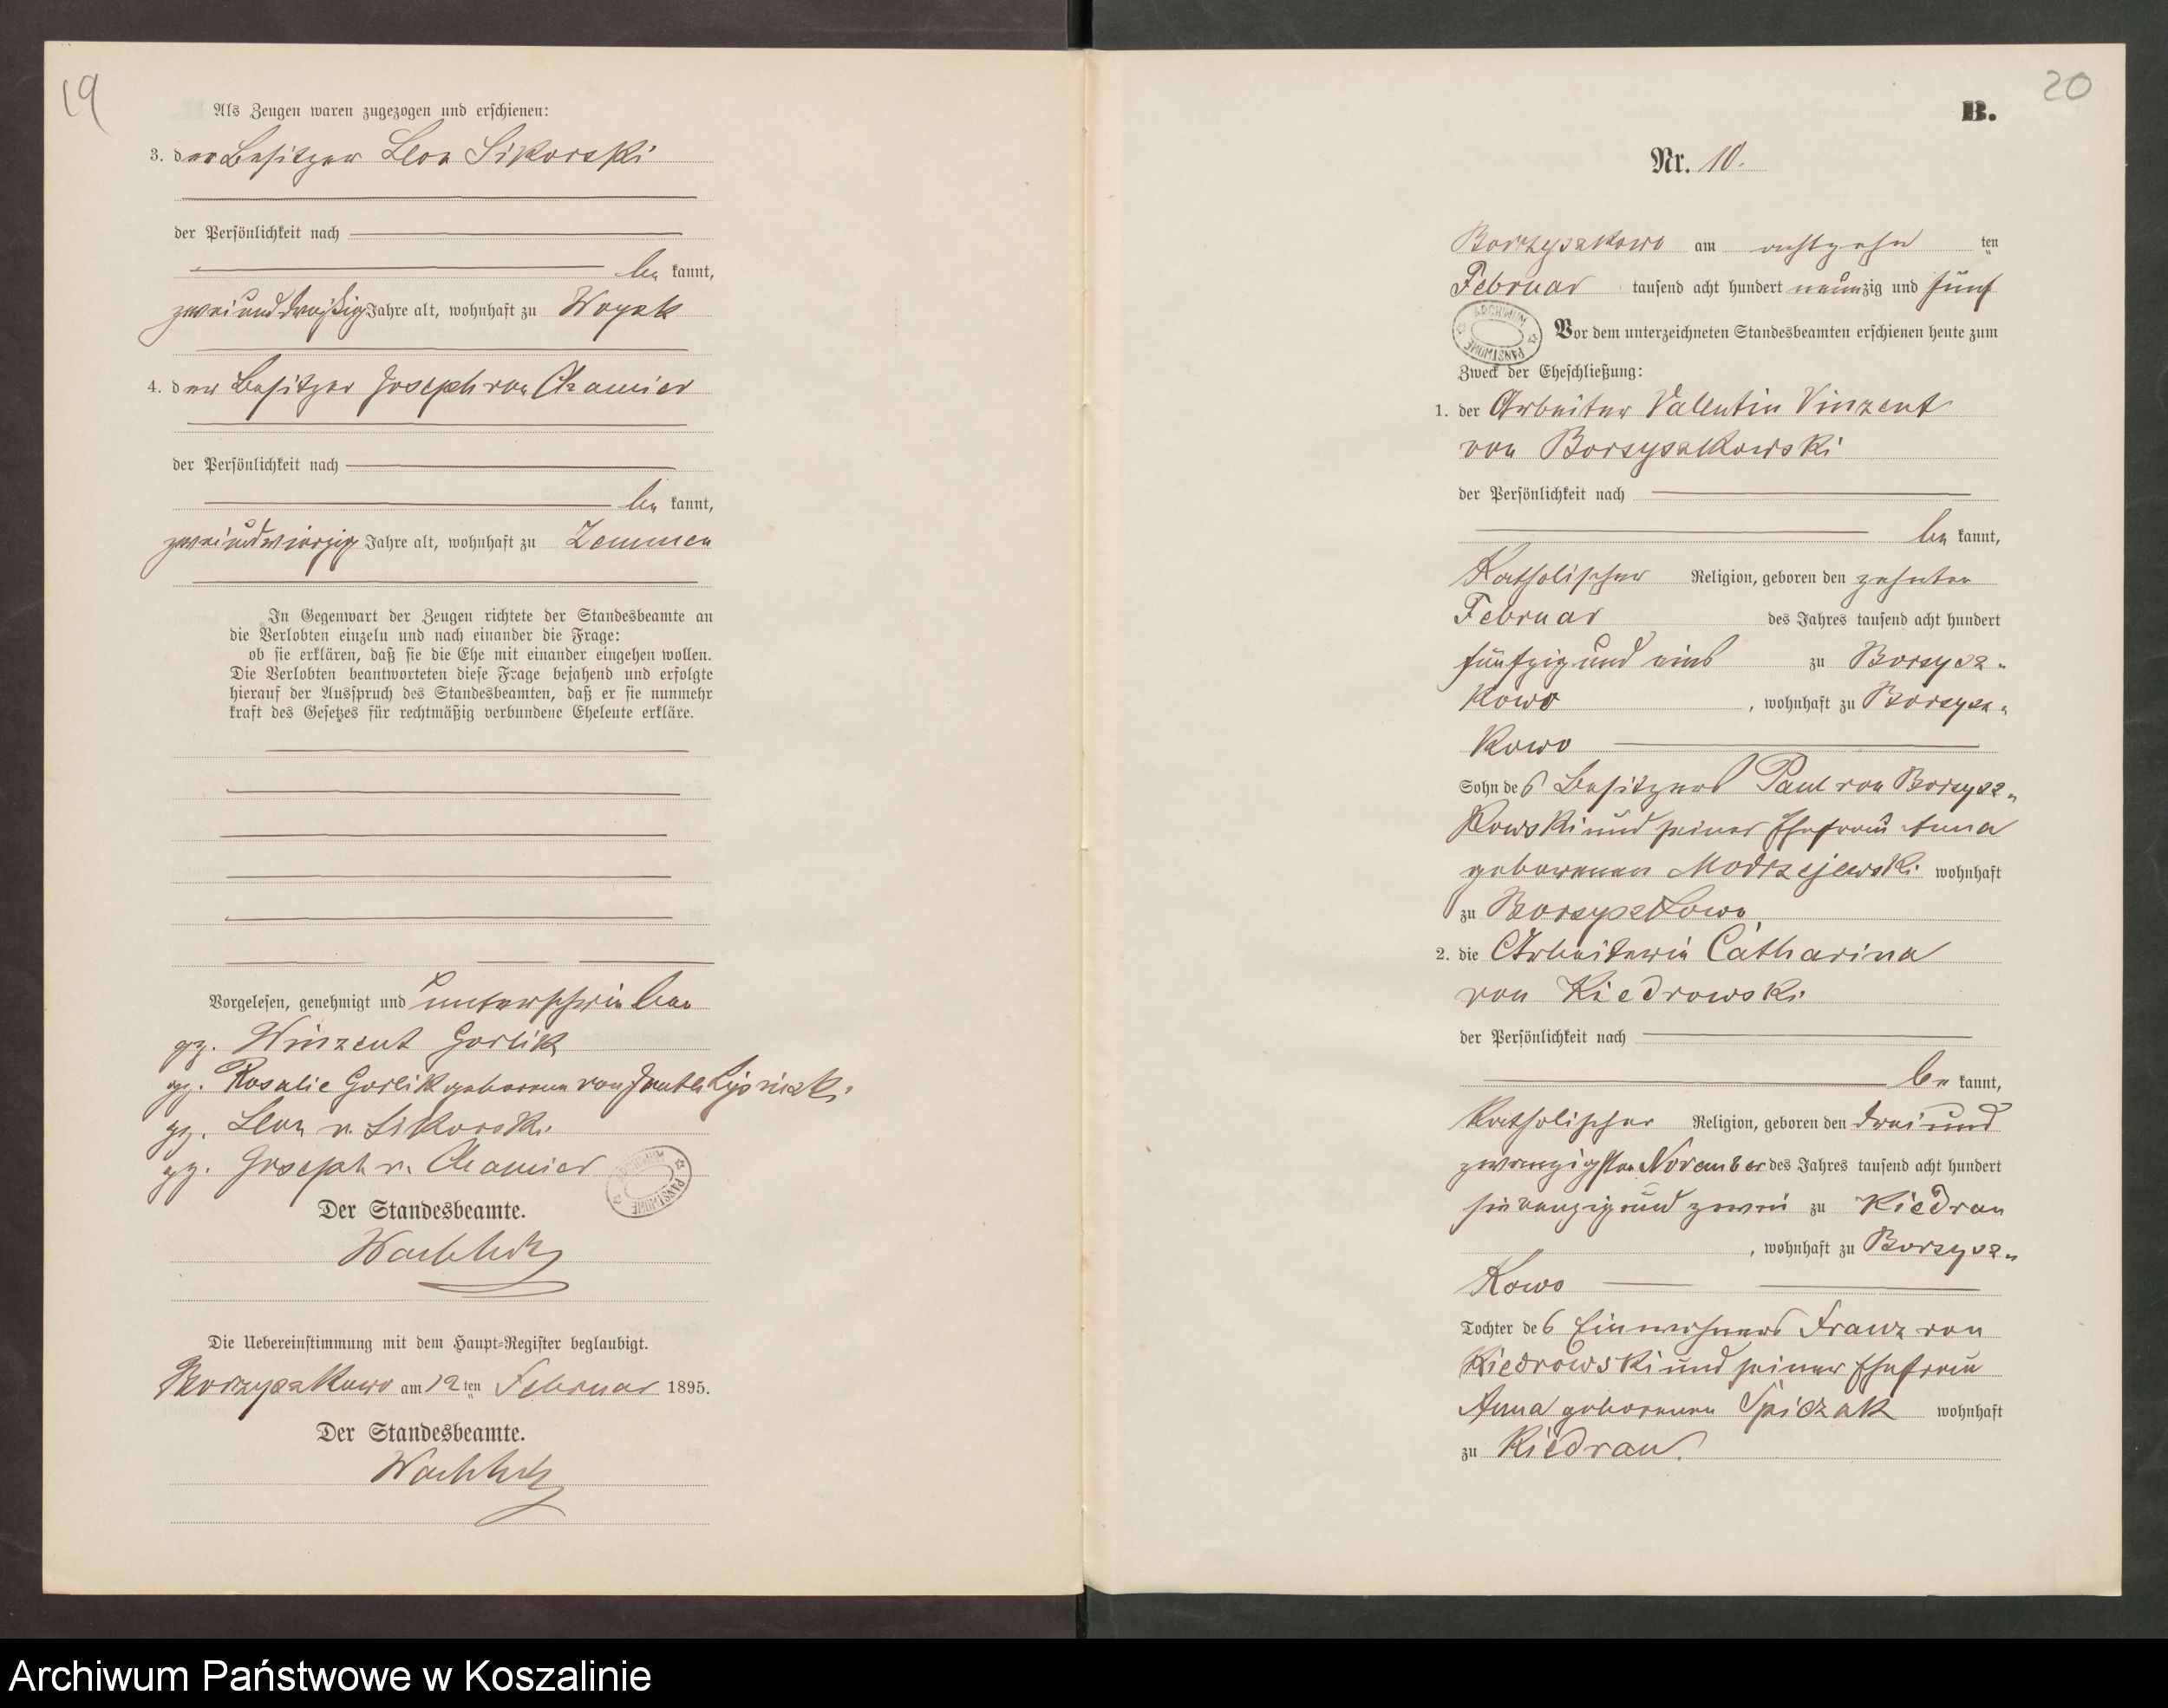 19
Als Zeugen waren zugezogen und erschienen:
3. der Besitzer Leon Sikorski
der Persönlichkeit nach
be kannt,
zweiunddreißig Jahre alt, wohnhaft zu Woysk
4. der Besitzer Joseph von Chamier
der Persönlichkeit nach
be kannt,
zweiundvierzig Jahre alt, wohnhaft zu Zemmen
In Gegenwart der Zeugen richtete der Standesbeamte an
die Verlobten einzeln und nach einander die Frage:
ob sie erklären, daß sie die Ehe mit einander eingehen wollen.
Die Verlobten beantworteten diese Frage bejahend und erfolgte
hierauf der Ausspruch des Standesbeamten, daß er sie nunmehr
kraft des Gesetzes für rechtmäßig verbundene Eheleute erkläre.
Vorgelesen, genehmigt und unterschrieben
gz. Winzent Gorlik
gz. Rosalie Gorlik geborene von
gz. Leon v. Sikorski
gz. Joseph v. Chamier
ARCHIWUM PAŃSTWOWE
Der Standesbeamte.
Die Uebereinstimmung mit dem Haupt-Register beglaubigt.
Borzyszkowo am 12ten Februar 1895.
Der Standesbeamte.
20
B.
Nr. 10.
Borzyszkowo am achtzehn ten
Februar tausend acht hundert neunzig und fünf
ARCHIWUM PAŃSTWOWE
Vor dem unterzeichneten Standesbeamten erschienen heute zum
Zweck der Eheschließung:
1. der Arbeiter Valentin Vinzent
von Borsyszkowski
der Persönlichkeit nach
be kannt,
Katholischer Religion, geboren den zehnten
Februar des Jahres tausend acht hundert
fünfzig und eins zu Borsysz-
kowo, wohnhaft zu Borsysz-
kowo
Sohn des Besitzers Paul von Borsysz-
kowski und seiner Ehefrau Anna
geborenen Modrzejewski wohnhaft
zu Borsyszkowo.
2. die Arbeiterin Catharina
von Kiedrowski
der Persönlichkeit nach
be kannt,
Katholischer Religion, geboren den drei und
zwanzigsten November des Jahres tausend acht hundert
siebenzig und zwei zu Kiedrau
, wohnhaft zu Borsysz-
kowo
Tochter des Einwohners Franz von
Kiedrowski und seiner Ehefrau
Anna geborenen Spiczak wohnhaft
zu Kiedrau.
Archiwum Państwowe w Koszalinie